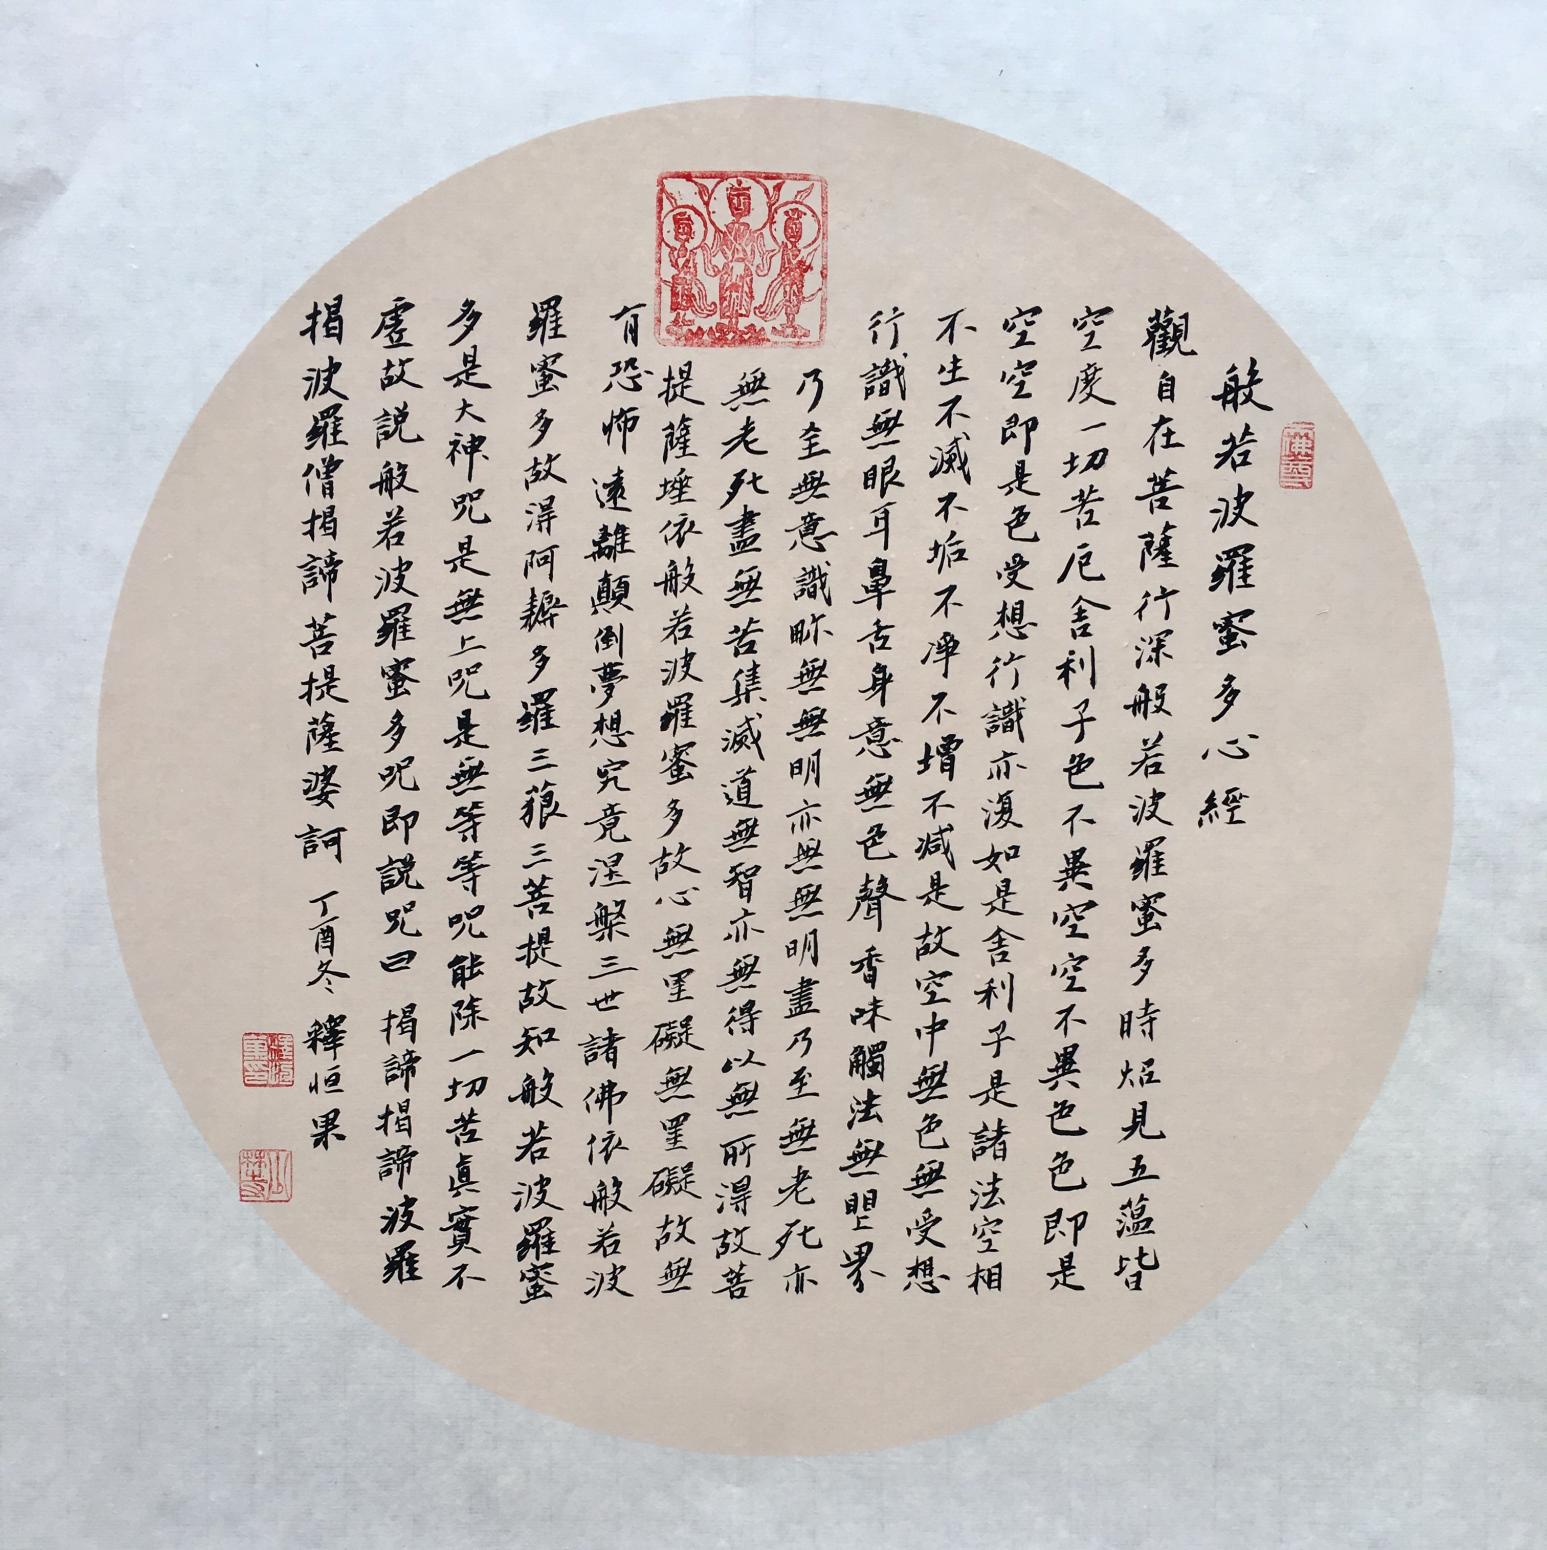 般若波羅蜜多心經
觀自在菩薩行深般若波羅蜜多時炤見五蕴皆
空度一切苦厄舍利子色不異空空不異色色即是
空空即是色受想行識亦復如是舍利子是諸法空相
不生不滅不垢不净不增不减是故空中無色無受想
行識無眼耳鼻舌身意無色聲香味觸法無眼界
乃至無意識界無無明亦無無明盡乃至無老死亦
無老死盡無苦集滅道無智亦無得以無所得故菩
提薩埵依般若波羅蜜多故心無罣礙無罣礙故無
有恐怖遠離顛倒夢想究竟涅槃三世諸佛依般若波
羅蜜多故得阿耨多羅三藐三菩提故知般若波羅蜜
多是大神咒是無上咒是無等等咒能除一切苦真實不
虛故説般若波羅蜜多咒即説咒曰 揭諦揭諦波羅
揭波羅僧揭諦菩提薩婆訶 丁酉冬 釋恒果